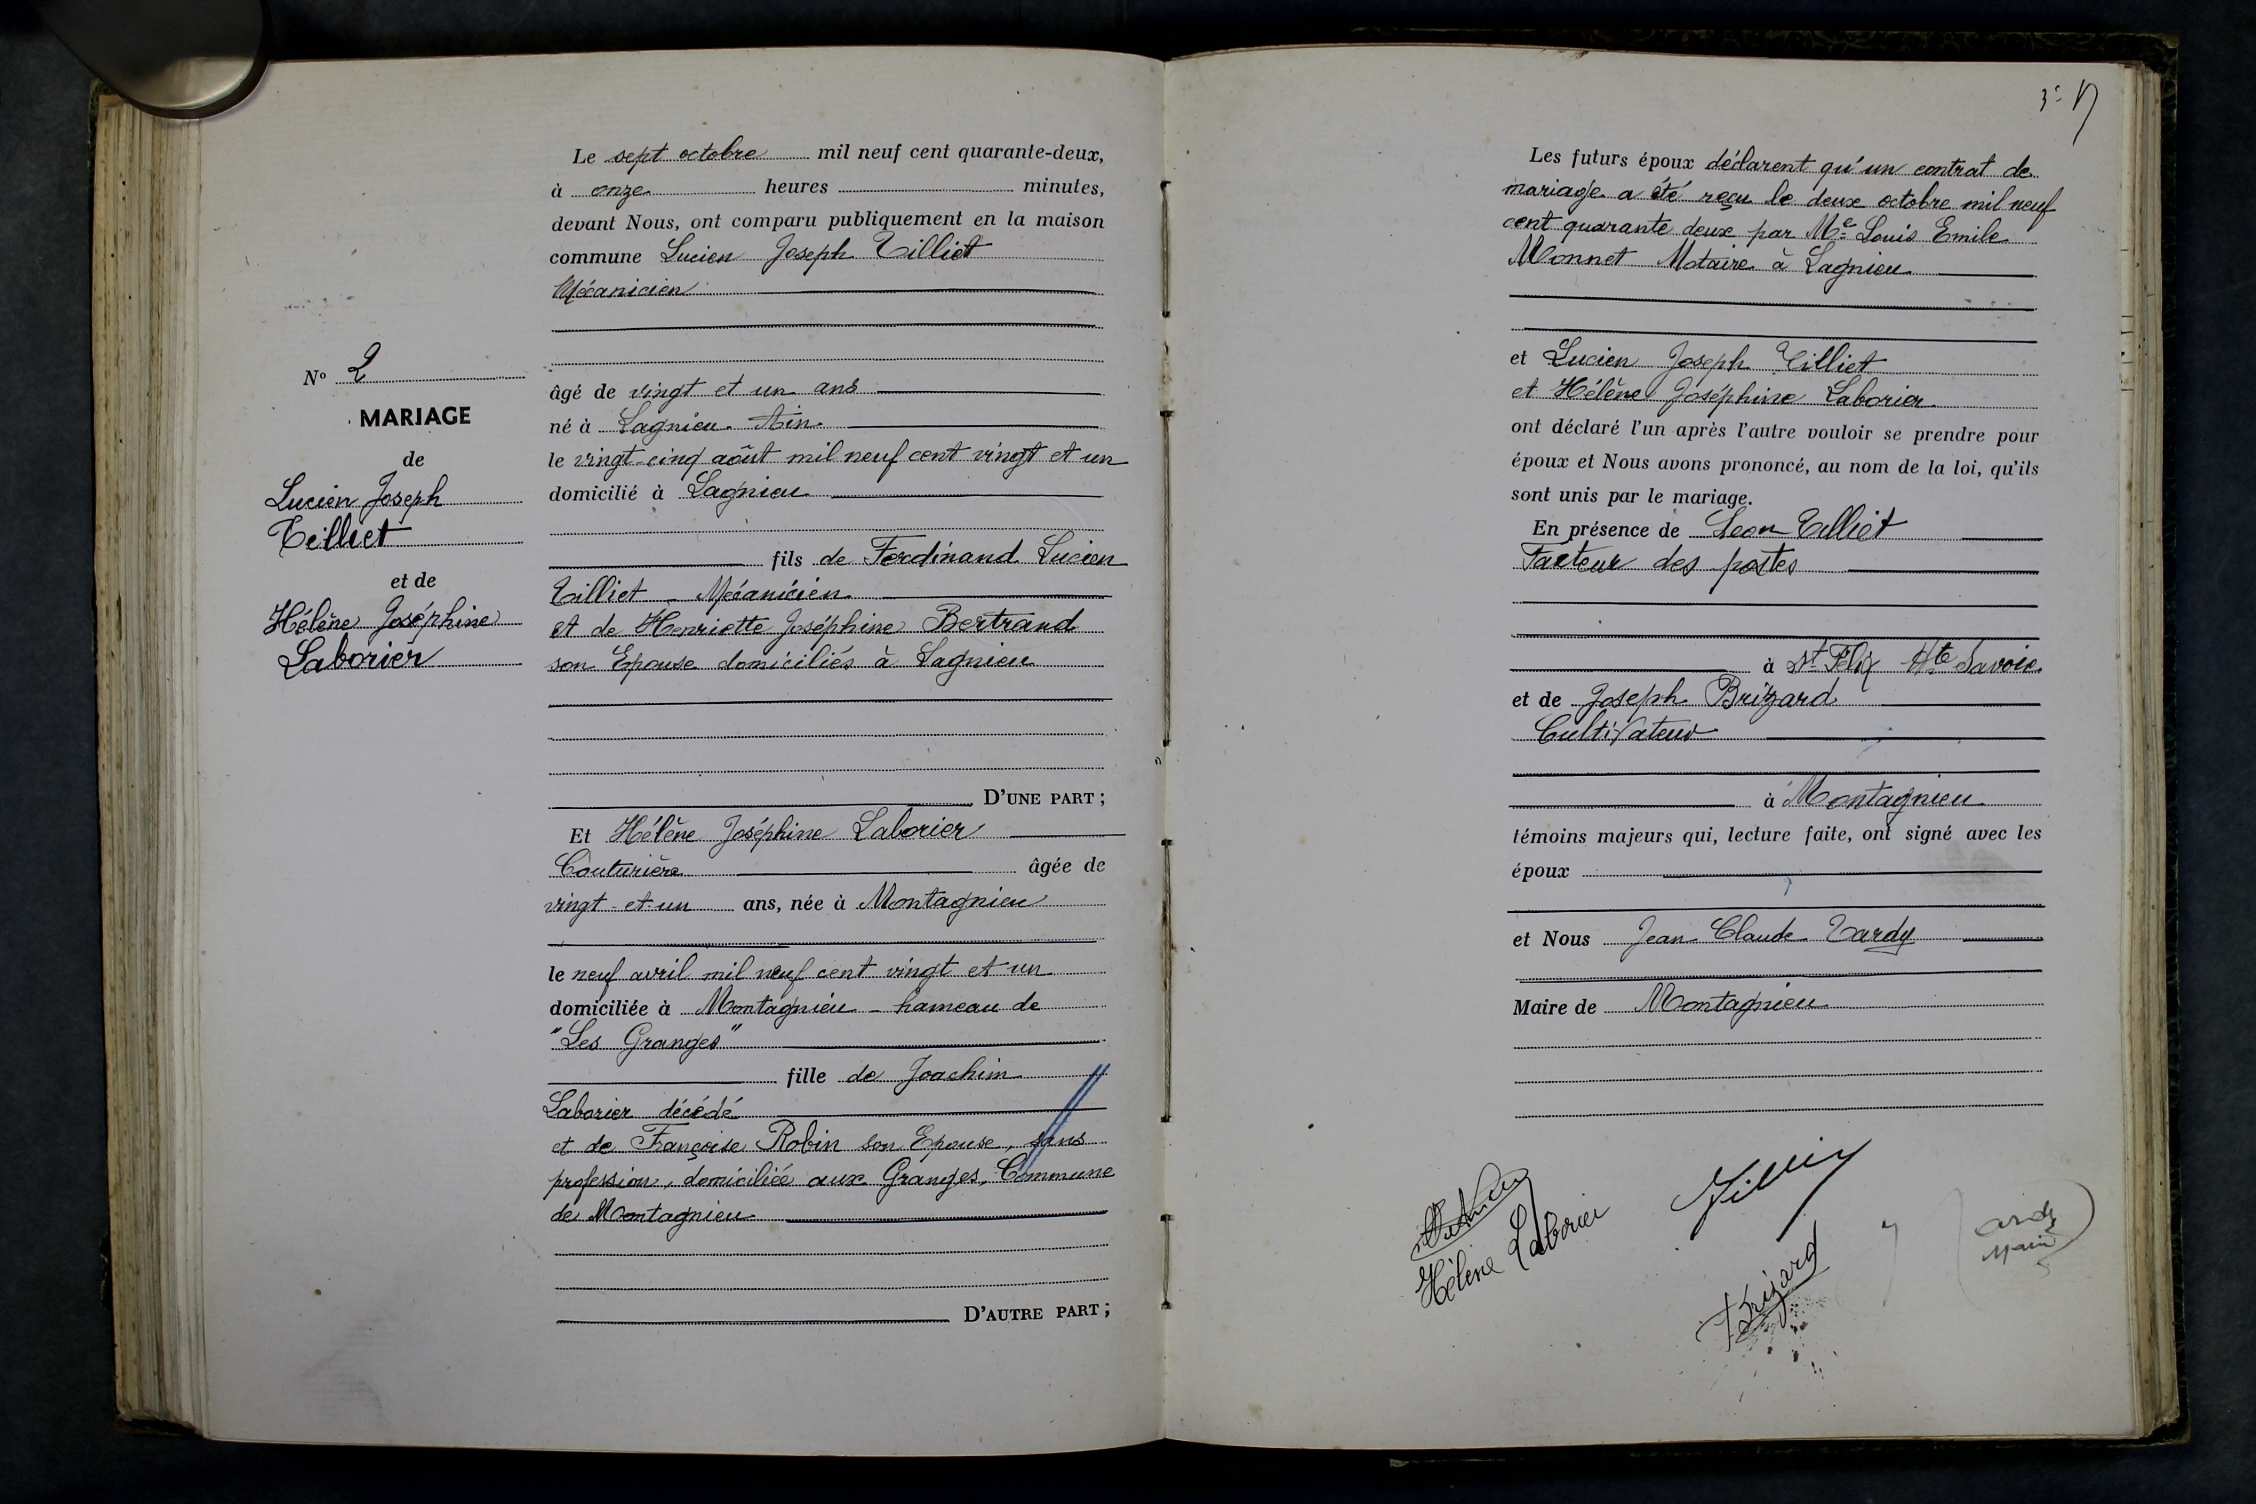 Le sept octobre mil neuf cent quarante-deux,
à onze heures minutes,
devant Nous, ont comparu publiquement en la maison
commune Lucien Joseph Tilliet
Mécanicien
âgé de vingt et un ans
né à Lagnieu Ain
le vingt-cinq août mil neuf cent vingt et un
domicilié à Lagnieu
fils de Ferdinand Lucien
Tilliet - Mécanicien
et de Henriette Joséphine Bertrand
son Epouse domiciliés à Lagnieu
D'UNE PART ;
Et Hélène Joséphine Laborier
Couturière âgée de
vingt-et-un ans, née à Montagnieu
le neuf avril mil neuf cent vingt et un
domiciliée à Montagnieu - hameau de
"Les Granges"
fille de Joachim
Laborier décédé
et de Françoise Robin son Epouse, sans
profession, domiciliée aux Granges, Commune
de Montagnieu
D'AUTRE PART ;
N° 2
MARIAGE
de
Lucien Joseph
Tilliet
et de
Hélène Joséphine
Laborier
Les futurs époux déclarent qu'un contrat de
mariage a été reçu le deux octobre mil neuf
cent quarante deux par Me Louis Emile
Monnet Notaire à Lagnieu
et Lucien Joseph Tilliet
et Hélène Joséphine Laborier
ont déclaré l'un après l'autre vouloir se prendre pour
époux et Nous avons prononcé, au nom de la loi, qu'ils
sont unis par le mariage.
En présence de Leon Tilliet
Facteur des postes
à St Félix Hte Savoie
et de Joseph Brizard
Cultivateur
à Montagnieu
témoins majeurs qui, lecture faite, ont signé avec les
époux
et Nous Jean Claude Tardy
Maire de Montagnieu
Hélène Laborier
Brizard